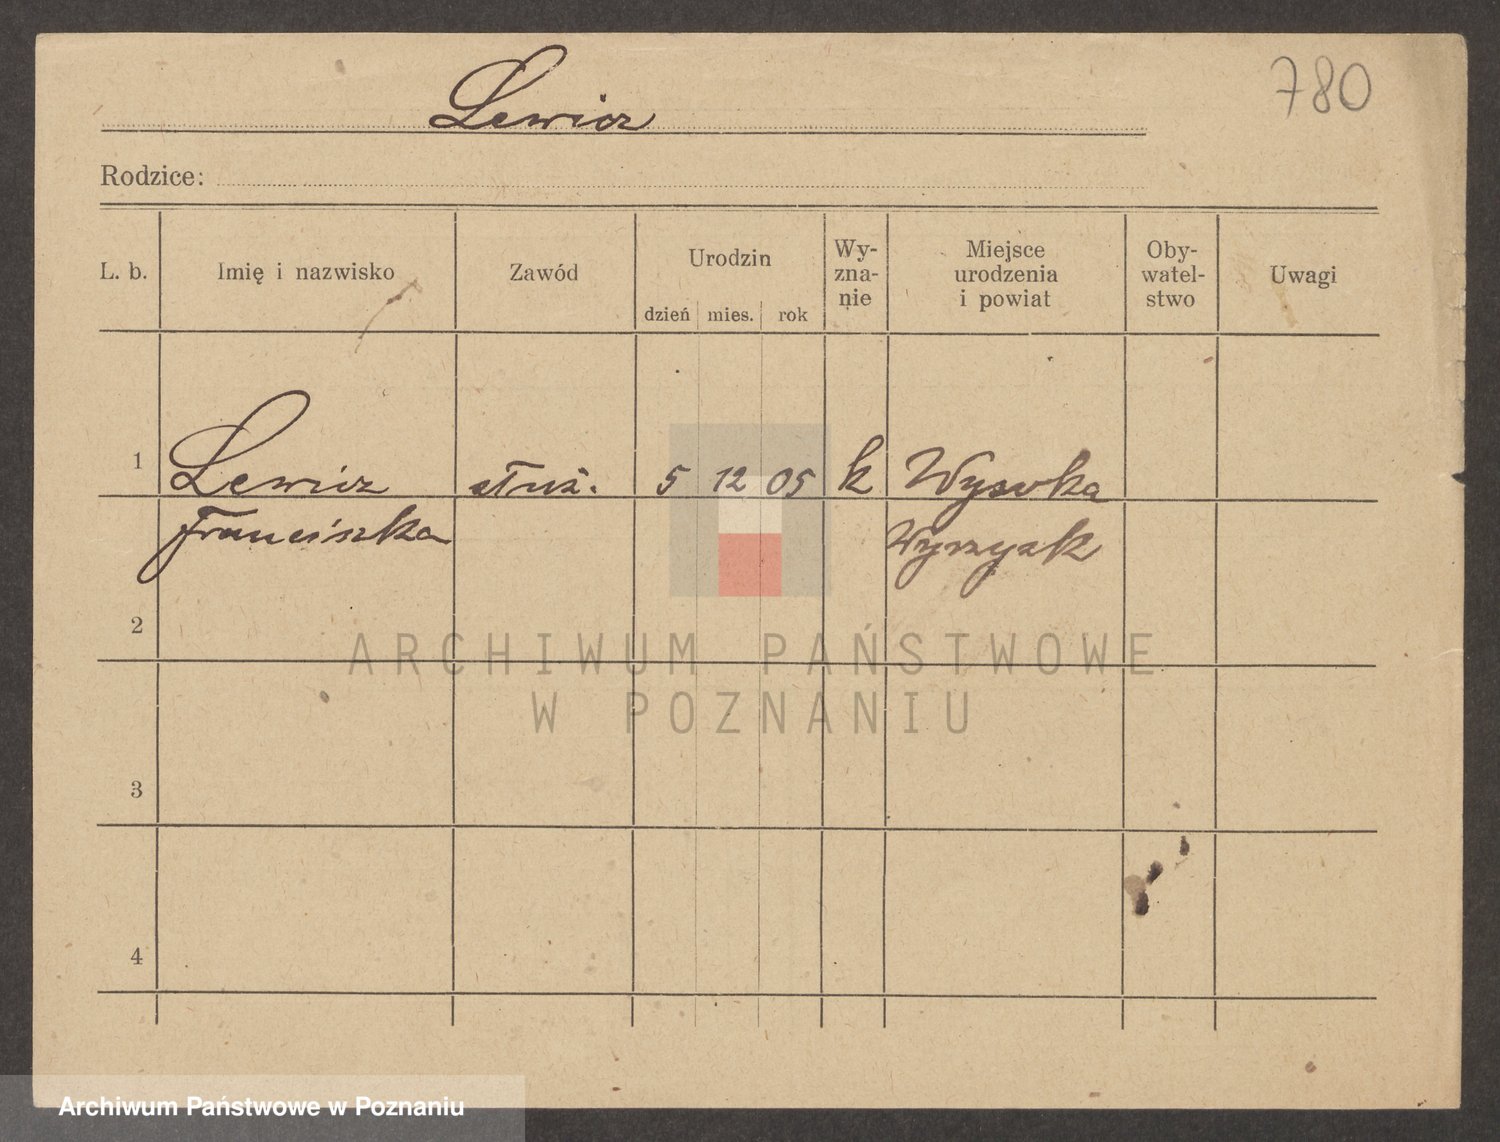 780
Lewicz
Rodzice:
L. b.
Imię i nazwisko
Zawód
Urodzin
dzień mies. rok
Wy-
zna-
nie
Miejsce
urodzenia
i powiat
Oby-
watel-
stwo
Uwagi
1 Lewicz służ. 5 12 05 k Wysoka
Franciszka Wyrzysk
2
3
4
ARCHIWUM PAŃSTWOWE
W POZNANIU
Archiwum Państwowe w Poznaniu